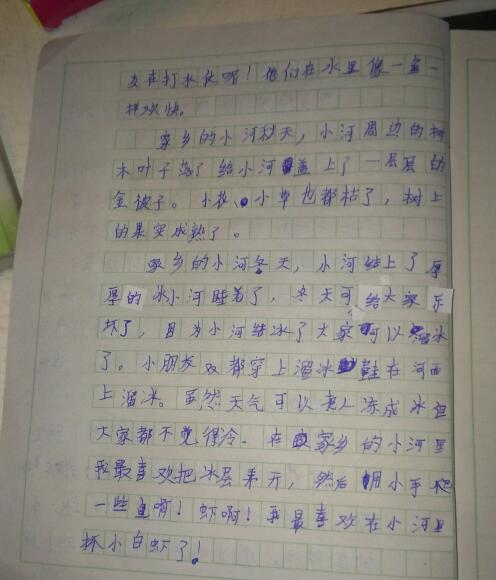 友在打水仗呢！他们在水里像一鱼一
样欢快。
家乡的小河秋天，小河周边的树
木叶子落了给小河盖上了一层层的
金被子。小花、小草也都枯了，树上
的果实成熟了。
家乡的小河冬天，小河结上了厚
厚的冰小河睡着了，冬天可给大家乐
坏了，因为小河结冰了大家可以溜冰
了。小朋友双都穿上溜冰鞋在河面
上溜冰。虽然天气可以把人冻成冰但
大家都不觉得冷。在家乡的小河里
我最喜欢把冰层弄开，然后用小手爬
一些鱼啊！虾啊！我最喜欢在小河里
抓小白虾了！